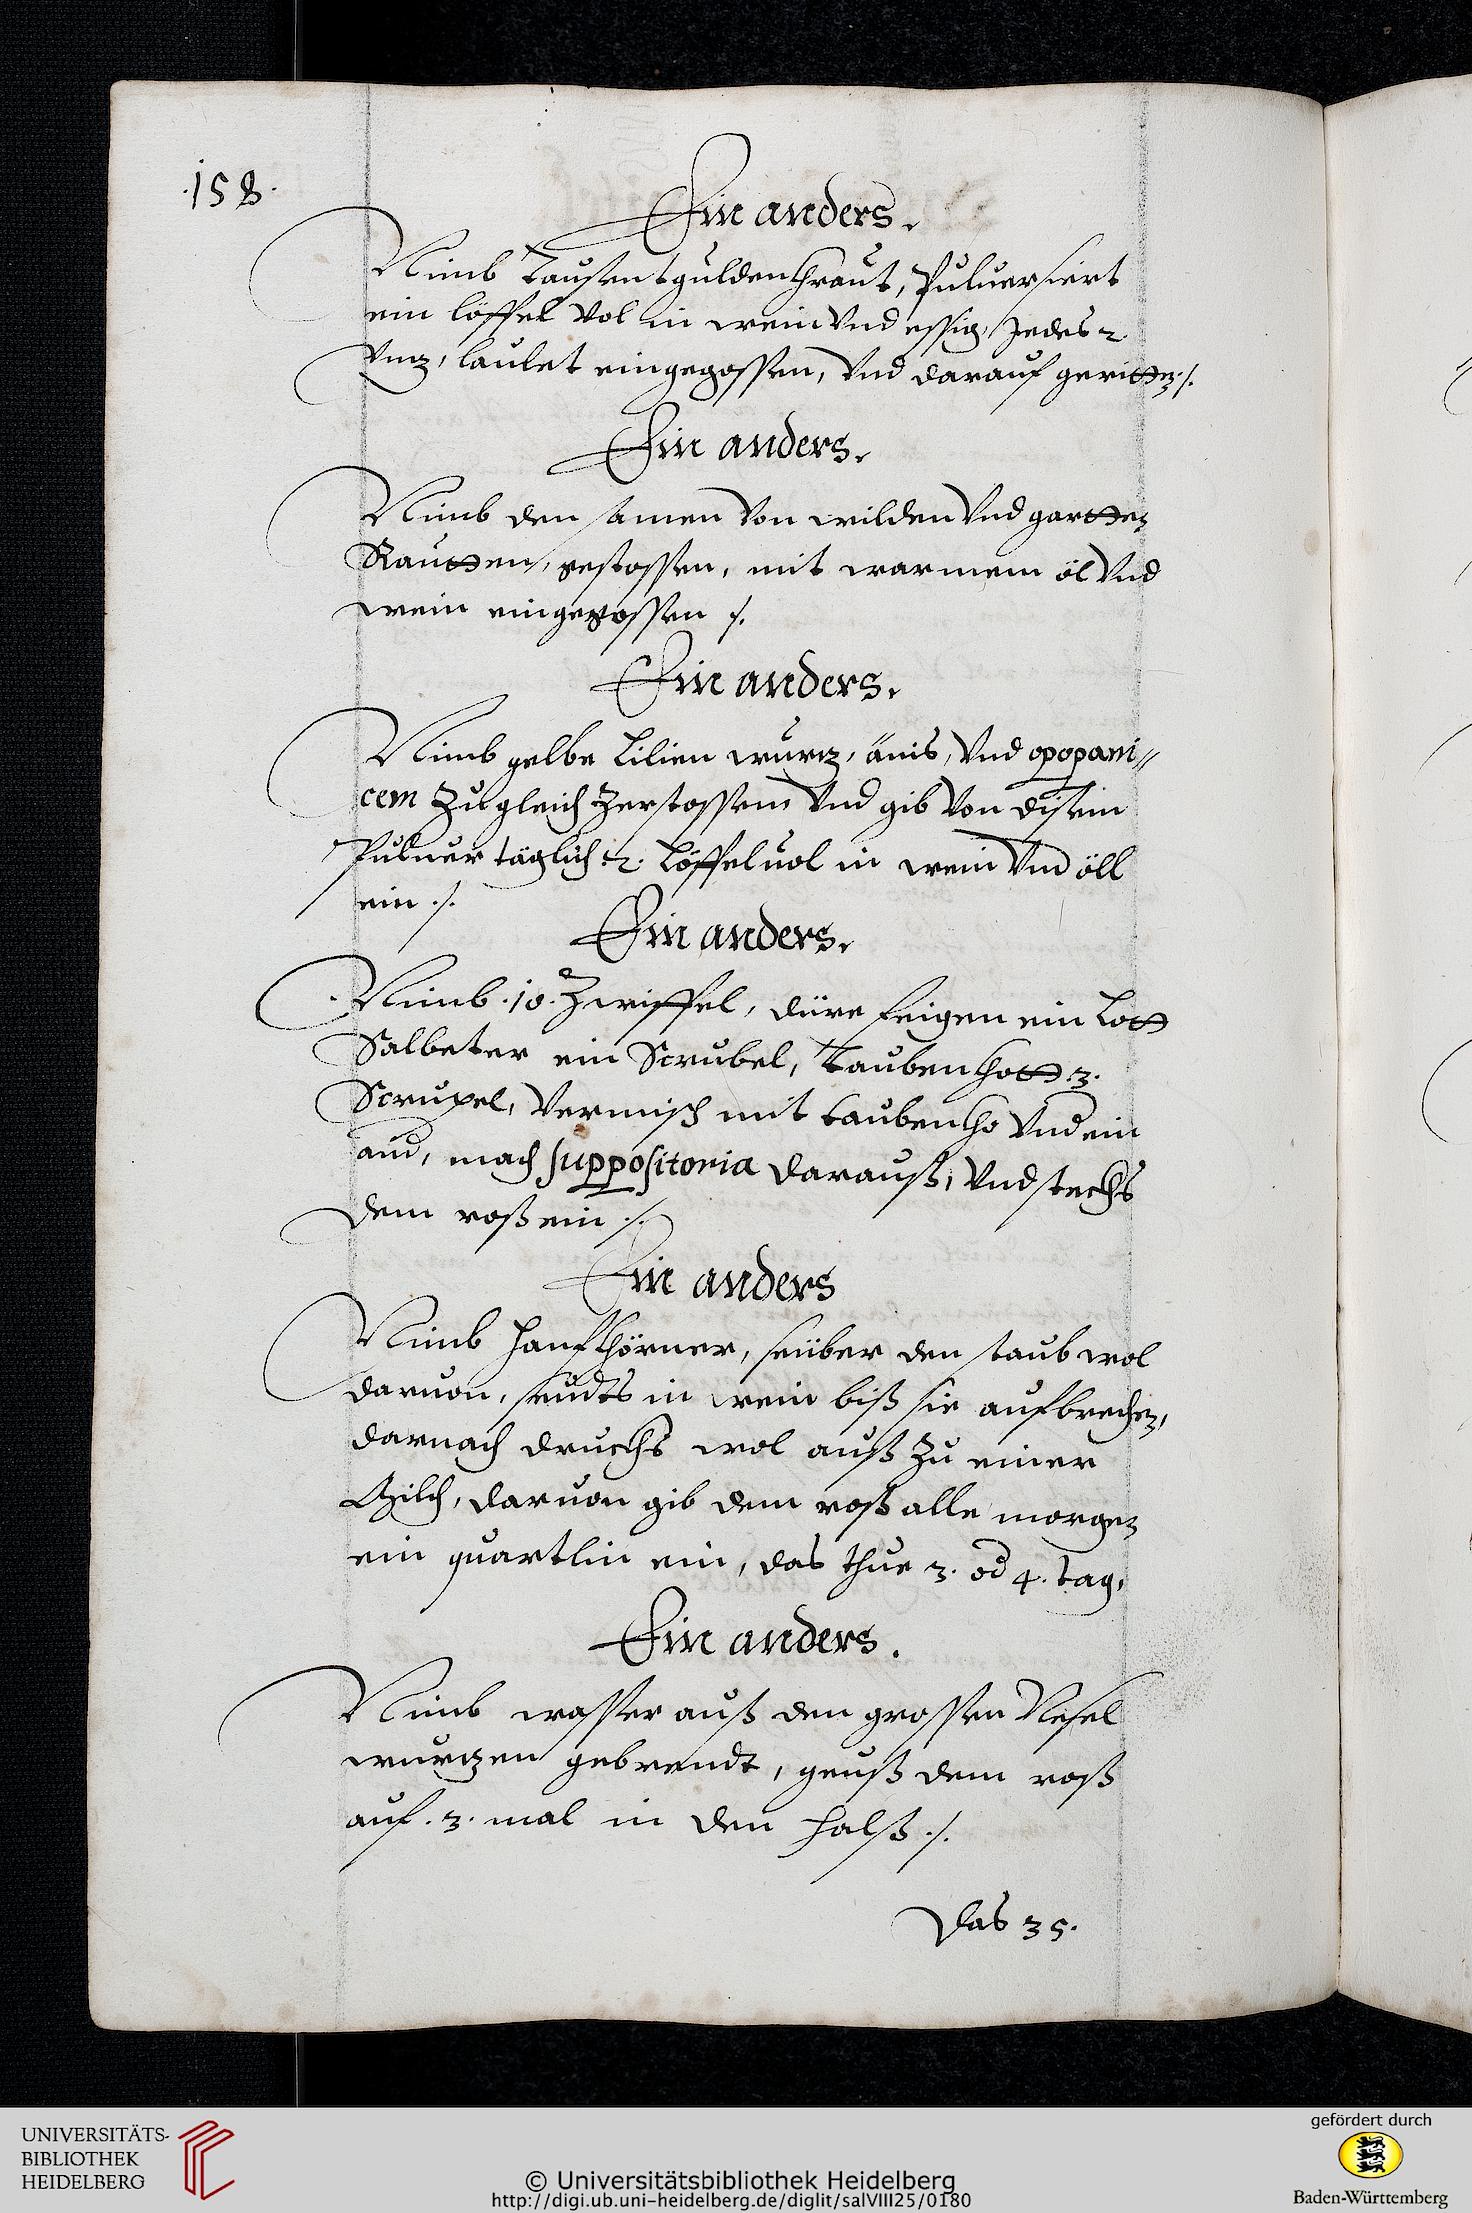 .158.
Ein anders.
Nimb Tausentguldenkraut, Puluersiert
ein löffel vol in wein vnd essig, Jedes 2.
vnz, laulet eingegossen, vnd darauf geritten ./.
Ein anders.
Nimb den samen von wilden vnd gartten
Rautten, gestossen, mit warmem öl vnd
wein eingegossen ./.
Ein anders.
Nimb gelbe Lilien wurz, änis, vnd opopani//
cem Zugleich Zerstossen vnd gib von disem
Puluer täglich .2. Löffeluol in wein vnd öll
ein ./.
Ein anders.
Nimb .10. Zwiffel, düre feigen ein Lott
Salbeter ein Scrubel, Taubenkott .3.
Scrupel, vermisch mit taubenko vnd ein
and, mach suppositoria darauß, vnd stecks
dem roß ein ./.
Ein anders
Nimb hanfkörner, seüber den staub wol
daruon, seudts in wein biß sie aufbrechen,
darnach druckhs wol auß Zu einer
Milch, daruon gib dem roß alle morgen
ein quartlin ein, das thue 3. od 4. tag,
Ein anders.
Nimb wasser auß den grossen Nesel
wurzen gebrendt, geuß dem roß
auf .3. mal in den halß ./.
Das 35.
UNIVERSITÄTS-
BIBLIOTHEK
HEIDELBERG
© Universitätsbibliothek Heidelberg
http://digi.ub.uni-heidelberg.de/diglit/salVIII25/0180
gefördert durch
Baden-Württemberg